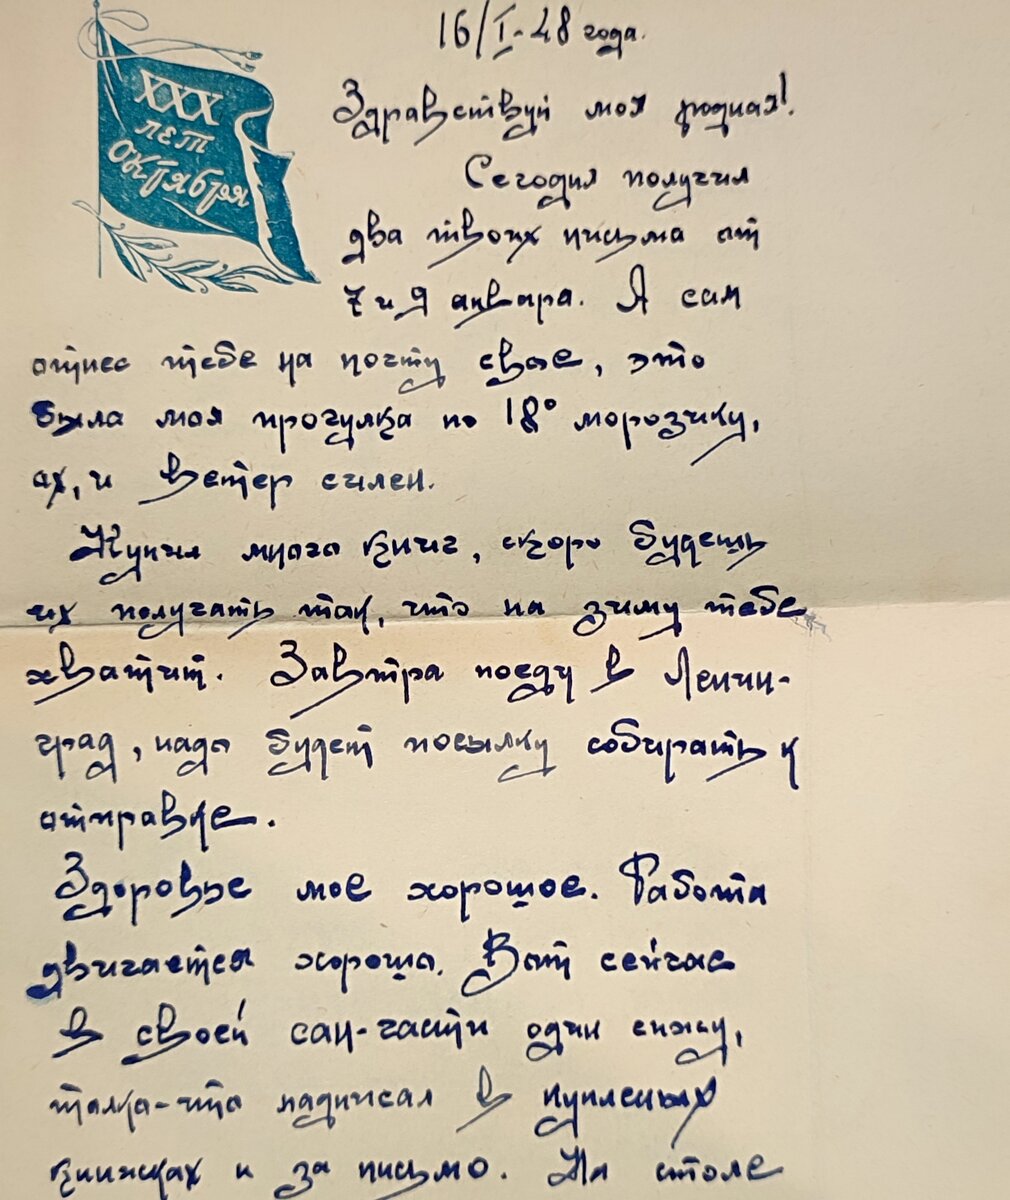 XXX
ЛЕТ
ОКТЯБРЯ
16/I-48 года.
Здравствуй моя родная!
Сегодня получил
два твоих письма от
7 и 9 января. Я сам
отнес тебе на почту свое, это
была моя прогулка по 18° морозчику,
ах, и ветер силен.
Купил много книг, скоро будешь
их получать так, что на зиму тебе
хватит. Завтра поеду в Ленин-
град, надо будет посылку собирать к
отправке.
Здоровье мое хорошое. Работа
двигается хорошо. Вот сейчас
в своей сан-части один сижу,
толко-что надписал в купленых
книжках и за письмо. На столе